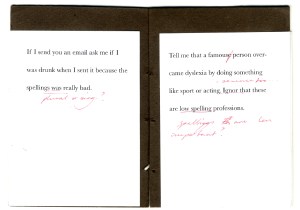 If I send you an email ask me if I
was drunk when I sent it because the
spellings was really bad.
plural or sing?
Tell me that a famouse person over-
came dyslexia by doing something
like sport or acting. Ignor that these
are low spelling professions.
spellings are low
important?